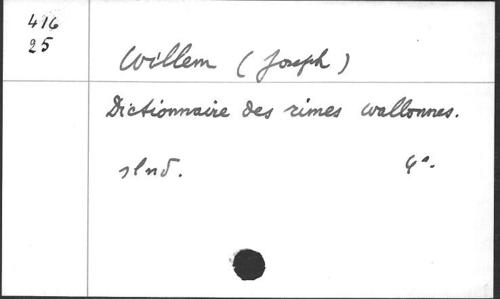 416
25
Willem (Joseph)
Dictionnaire des rimes wallonnes.
slnd. 4°.